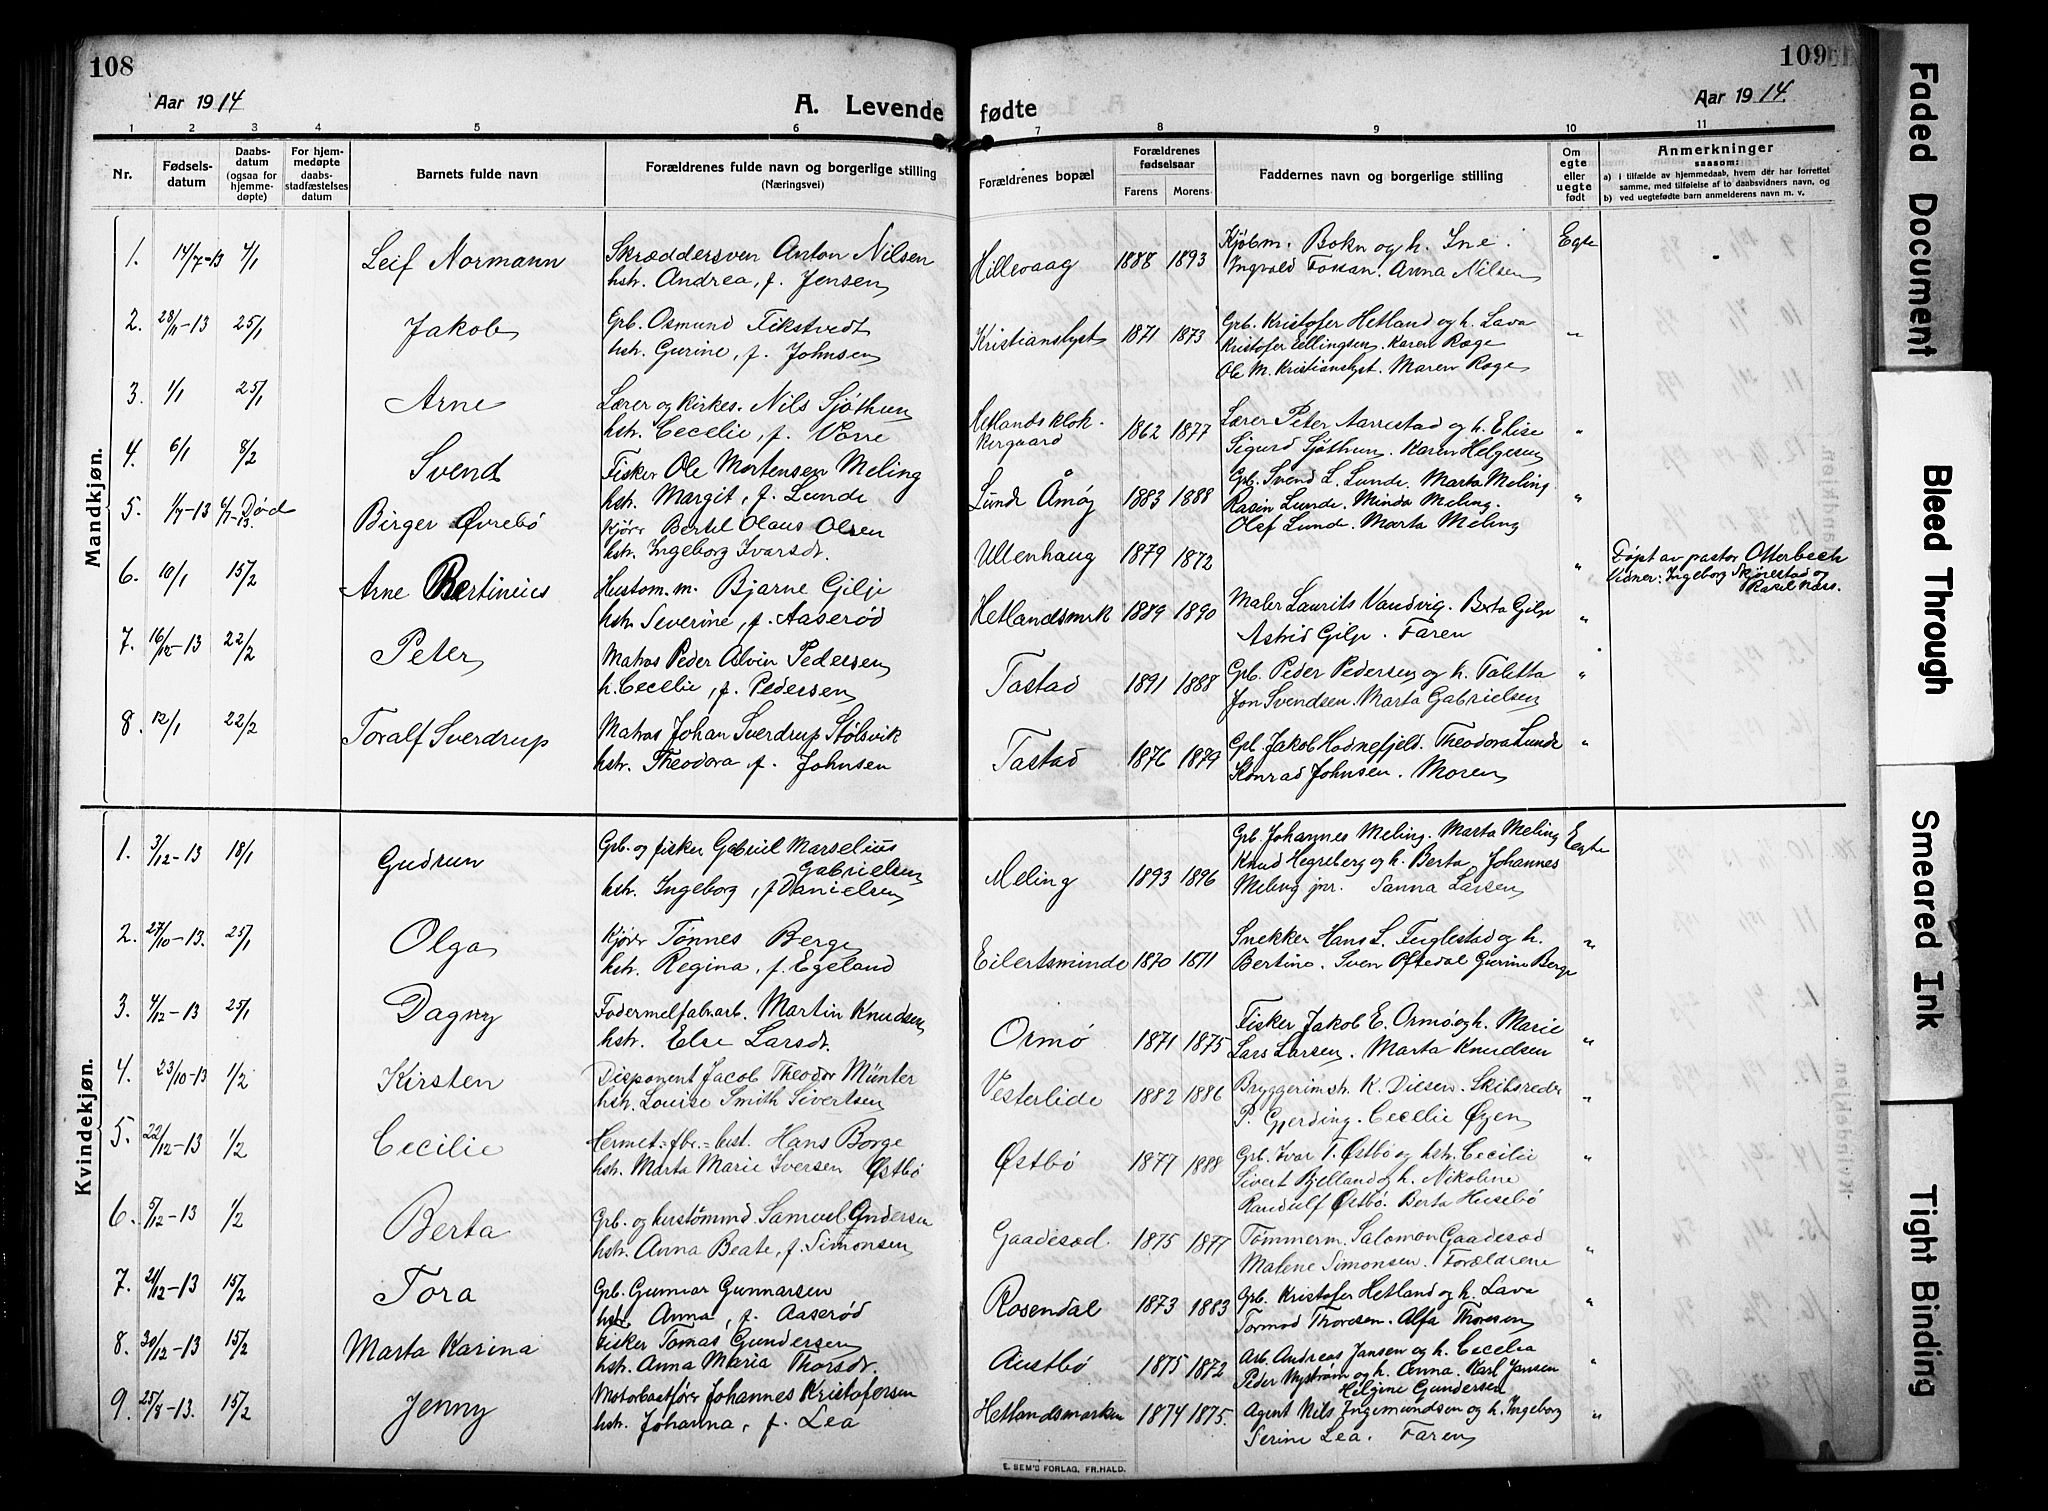 108
109
Aar 1914
A. Levende fødte
Aar 1914.
1 2 3 4 5 6 7 8 9 10 11
Nr.
Fødselsdatum
Daabsdatum (ogsaa for hjemmedøpte)
For hjemmedøpte daabsstadfæstelses datum
Barnets fulde navn
Forældrenes fulde navn og borgerlige stilling (Næringsvei)
Forældrenes bopæl
Forældrenes fødselsaar
Farens Morens
Faddernes navn og borgerlige stilling
Om egte eller uegte født
Anmerkninger
saasom:
a) i tilfælde av hjemmedaab, hvem dér har forrettet samme, med tilføielse af to daabsvidners navn, og
b) ved uegtefødte barn anmelderens navn m. v.
Mandkjøn.
1. 14/7-13 4/1 Leif Normann
Skræddersven Anton Nilsen
hstr. Andrea, f. Jensen
Hillevaag 1888 1893
Kjøbm. Bokn og h. Ine.
Ingvald Fossan. Anna Nilsen
Egte
2. 28/11-13 25/1 Jakob
Grb. Osmund Fikstvedt
hstr. Gurine, f. Johnsen
Kristianslyst 1871 1873
Grb. Kristofer Hetland og h. Lava
Kristofer Ellingsen. Karen Røge
Ole M. Kristianslyst. Maren Røge
"
3. 1/1 25/1 Arne
Lærer og kirkes. Nils Sjøthun
hstr. Cecelie, f. Vorre
Hetlands klokkergaard 1862 1877
Lærer Peter Aarrestad og h. Elise
Sigurd Sjøthun. Karen Helgesen
"
4. 6/1 8/2 Svend
Fisker Ole Mortensen Meling
hstr. Margit, f. Lunde
Lunde Åmøy 1883 1888
Grb. Svend L. Lunde. Marta Meling
Rasin Lunde. Minda Meling.
Olef Lunde. Marta Meling
"
5. 1/7-13 6/7-13. Død Birger Øvrebø
Kjører Bertel Olaus Olsen
hstr. Ingeborg Ivarsdr.
Ullenhaug 1879 1872
"
Døpt av pastor Otterbech
Vidner: Ingeborg Skjørestad og
6. 10/1 15/2 Arne Bertineius
Hustom. m. Bjarne Gilje
hstr. Severine, f. Aaserød
Hetlandsmrk 1889 1890
Maler Laurits Vandvig. Berta Gilje
Astrid Gilje. Faren
"
7. 16/12-13 22/2 Peter
Matros Peder Alvin Pedersen
h. Cecelie, f. Pedersen
Tastad 1891 1888
Grb. Peder Pedersen og h. Taletta
Jon Svendsen. Marta Gabrielsen
"
8. 12/1 22/2 Toralf Sverdrup
Matros Johan Sverdrup Stølsvik
hstr. Theodora, f. Johnsen
Tastad 1876 1879
Grb. Jakob Hodnefjeld. Theodora Lunde
Konrad Johnsen. Moren
"
Kvindekjøn.
1. 3/12-13 18/1 Gudrun
Grb. og fisker Gabriel Marselius
Gabrielsen
hstr. Ingeborg, f. Danielsen
Meling 1893 1896
Grb. Johannes Meling. Marta Meling
Knud Hegreberg og h. Berta, Johannes
Meling jnr. Sanna Larsen
Egte
2. 27/10-13. 25/1 Olga
Kjører Tønnes Berge
hstr. Regina, f. Egeland
Eilertsminde 1870 1871
Snekker Hans L. Fuglestad og h.
Bertine. Sven Oftedal Gurine Berge
"
3. 4/12-13 25/1 Dagny
Fodermelfabr.arb. Martin Knudsen
hstr. Else Larsdr.
Ormø 1871 1875
Fisker Jakob E. Ormø og h. Marie
Lars Larsen. Marta Knudsen
"
4. 23/10-13 1/2 Kirsten
Disponent Jacob Theodor Münter
hstr. Louise Smith Sivertsen
Vesterlide 1882 1886
Bryggerimstr. K. Dilsen. Skibsreder
P. Gjerding. Cecelie Øyen
"
5. 22/12-13 1/2 Cecilie
Hermet.-fbr.-best. Hans Borge
hstr. Marta Marie Iversen Østbø
Østbø 1877 1888
Grb. Ivar T. Østbø og hstr. Cecilie
Sivert Bjelland og h. Nikoline
Randulf Østbø. Berta Husebø
"
6. 5/12-13 1/2 Berta
Grb. og hustømmd. Samuel Gundersen
hstr. Anna Beate, f. Simonsen
Gaadesød 1875 1877
Tømmerm. Salomon Gaadesød
Malene Simonsen. Forældrene
"
7. 21/12-13 15/2 Tora
Grb. Gunnar Gunnarsen
hstr. Anna, f. Aaserød
Rosendal 1873 1883
Grb. Kristofer Hetland og h. Lava
Tormod Thoresen. Alfa Thoresen
"
8. 30/12-13 15/2 Marta Karina
Fisker Tomas Gundersen
hstr. Anna Maria Thorsdr.
Austbø 1875 1872
Arb. Andreas Jansen og h. Cecelia
Peder Nystrøm og h. Anna. Karl Jansen
Helgine Gundersen
"
9. 25/8-13. 15/2 Jenny
Motorbaatfører Johannes Kristofersen
hstr. Johanna, f. Lea
Hetlandsmarken 1874 1875.
Agent Nils Ingemundsen og h. Ingeborg
Serine Lea. Faren
"
E. SEM'S FORLAG, FR.HALD.
Faded Document
Bleed Through
Smeared Ink
Tight Binding